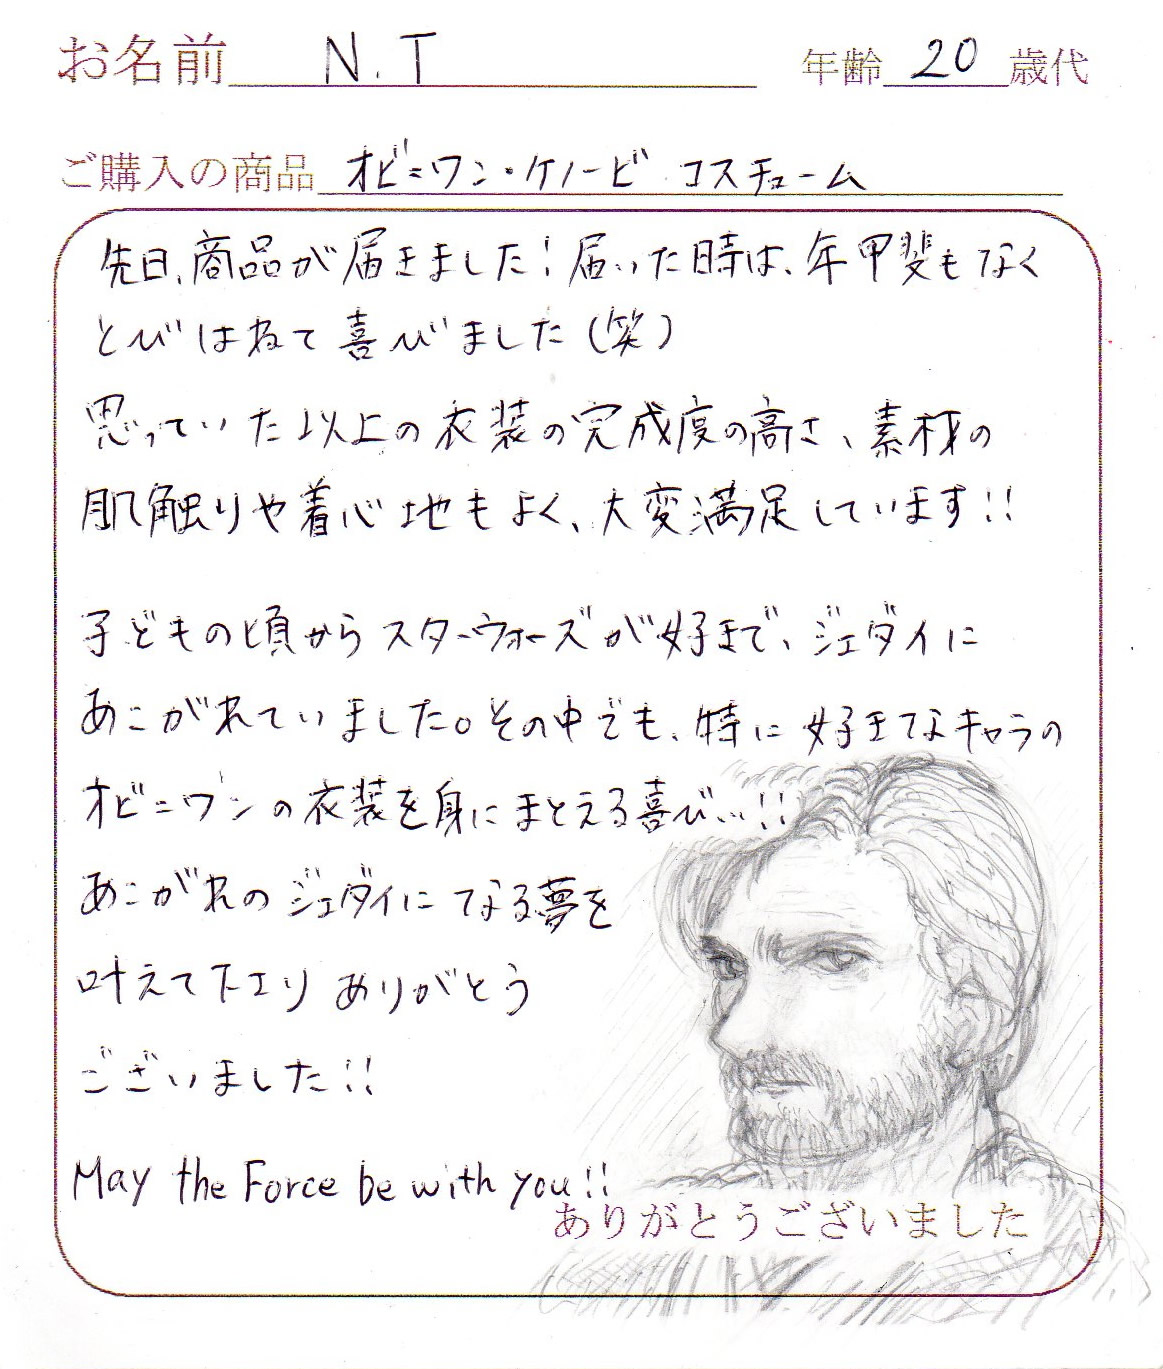 お名前 N.T 年齢 20 歳代
ご購入の商品 オビ=ワン・ケノービ コスチューム
先日、商品が届きました!届いた時は、年甲斐もなく
とびはねて喜びました(笑)
思っていた以上の衣装の完成度の高さ、素材の
肌触りや着心地もよく、大変満足しています!!
子どもの頃からスターウォーズが好きで、ジェダイに
あこがれていました。その中でも、特に好きなキャラの
オビ=ワンの衣装を身にまとえる喜び…!!
あこがれのジェダイになる夢を
叶えて下さり ありがとう
ございました!!
May the Force be with you!!
ありがとうございました